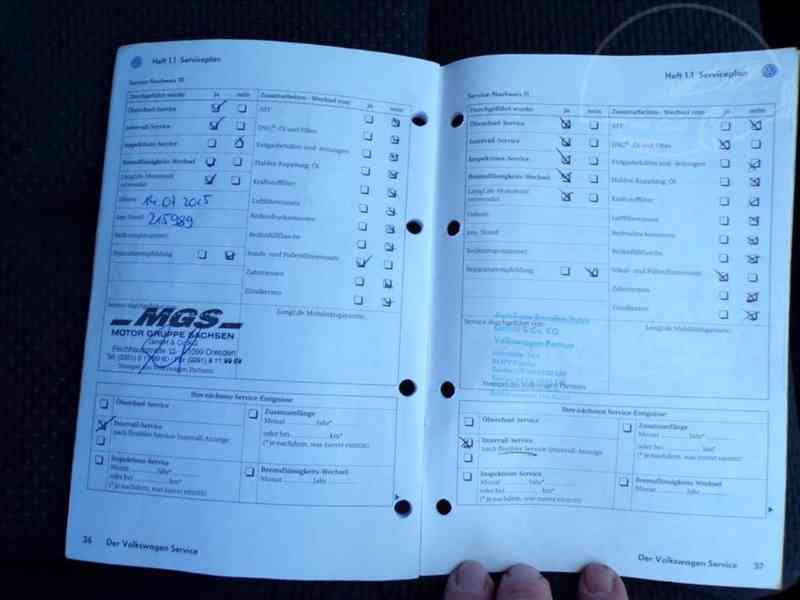 Heft 1.1 Serviceplan
Service-Nachweis 10
Durchgeführt wurde: ja nein
Ölwechsel-Service
Intervall-Service
Inspektions-Service
Bremsflüssigkeits-Wechsel
LongLife-Motoröl
verwendet
Datum: 14.07 2015
km-Stand: 215989
Reparaturempfehlung
Service durchgeführt von:
MGS
MOTOR GRUPPE SACHSEN
GmbH & Co. KG
01099 Dresden
Stempel des Volkswagen Partners
Zusatzarbeiten - Wechsel von: ja nein
ATF
DSG®-Öl und Filter
Haldex Kupplung: Öl
Kraftstofffilter
Luftfiltereinsatz
Reifenfüllflasche
Staub- und Pollenfiltereinsatz
Zahnriemen
Zündkerzen
LongLife Mobilitätsgarantie:
Ihre nächsten Service-Ereignisse
Ölwechsel-Service
Intervall-Service
nach flexibler Service-Intervall-Anzeige
Inspektions-Service
Monat Jahr*
oder bei km*
(* je nachdem, was zuerst eintritt)
Zusatzumfänge
Monat Jahr*
oder bei km*
(* je nachdem, was zuerst eintritt)
Bremsflüssigkeits-Wechsel
Monat Jahr
36 Der Volkswagen Service
Heft 1.1 Serviceplan
Service-Nachweis 11
Durchgeführt wurde: ja nein
Ölwechsel-Service
Intervall-Service
Inspektions-Service
Bremsflüssigkeits-Wechsel
LongLife-Motoröl
verwendet
Datum:
km-Stand:
Reparaturempfehlung
Service durchgeführt von:
GmbH & Co. KG
Volkswagen Partner
Stempel des Volkswagen Partners
Zusatzarbeiten - Wechsel von: ja nein
ATF
DSG®-Öl und Filter
Haldex Kupplung: Öl
Kraftstofffilter
Luftfiltereinsatz
Reifenfüllflasche
Staub- und Pollenfiltereinsatz
Zahnriemen
Zündkerzen
LongLife Mobilitätsgarantie:
Ihre nächsten Service-Ereignisse
Ölwechsel-Service
Intervall-Service
nach flexibler Service-Intervall-Anzeige
Inspektions-Service
Monat Jahr*
oder bei km*
(* je nachdem, was zuerst eintritt)
Zusatzumfänge
Monat Jahr*
oder bei km*
(* je nachdem, was zuerst eintritt)
Bremsflüssigkeits-Wechsel
Monat Jahr
Der Volkswagen Service 37